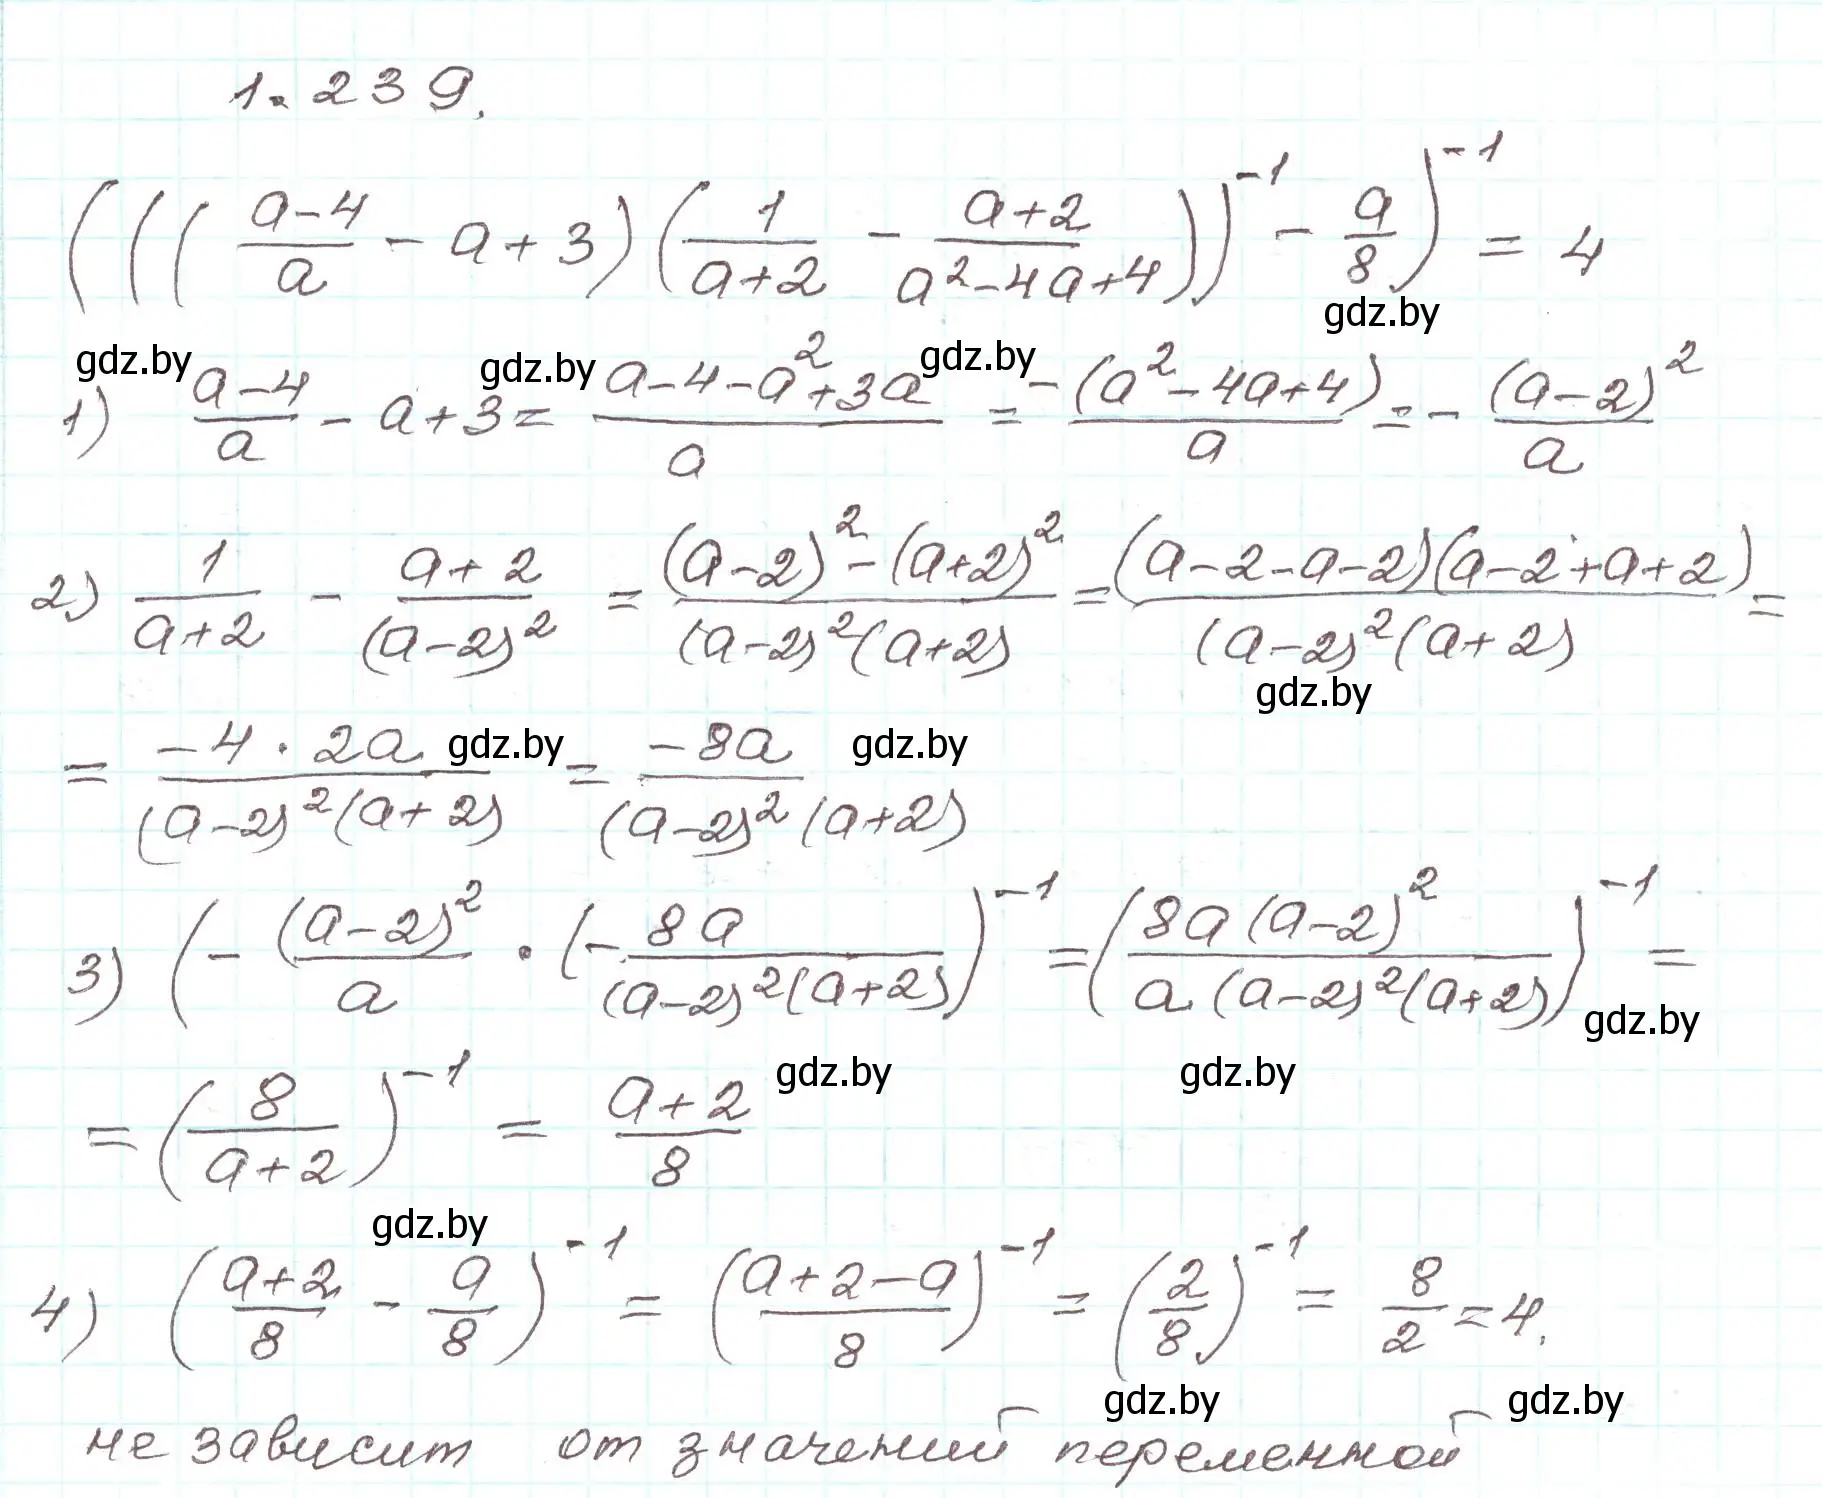 1.239.
(((\frac{a-4}{a} - a+3)(\frac{1}{a+2} - \frac{a+2}{a^2-4a+4}))^{-1} - \frac{a}{8})^{-1} = 4
gdz.by
gdz.by gdz.by gdz.by
1) \frac{a-4}{a} - a+3 = \frac{a-4-a^2+3a}{a} = \frac{-(a^2-4a+4)}{a} = -\frac{(a-2)^2}{a}
2) \frac{1}{a+2} - \frac{a+2}{(a-2)^2} = \frac{(a-2)^2-(a+2)^2}{(a-2)^2(a+2)} = \frac{(a-2-a-2)(a-2+a+2)}{(a-2)^2(a+2)} =
gdz.by
= \frac{-4·2a}{(a-2)^2(a+2)} = \frac{-8a}{(a-2)^2(a+2)}
gdz.by gdz.by
3) (-\frac{(a-2)^2}{a} · (-\frac{8a}{(a-2)^2(a+2)})^{-1} = (\frac{8a(a-2)^2}{a(a-2)^2(a+2)})^{-1} =
gdz.by
= (\frac{8}{a+2})^{-1} = \frac{a+2}{8}
gdz.by gdz.by
gdz.by
4) (\frac{a+2}{8} - \frac{a}{8})^{-1} = (\frac{a+2-a}{8})^{-1} = (\frac{2}{8})^{-1} = \frac{8}{2} = 4.
gdz.by gdz.by
не зависит от значений переменной